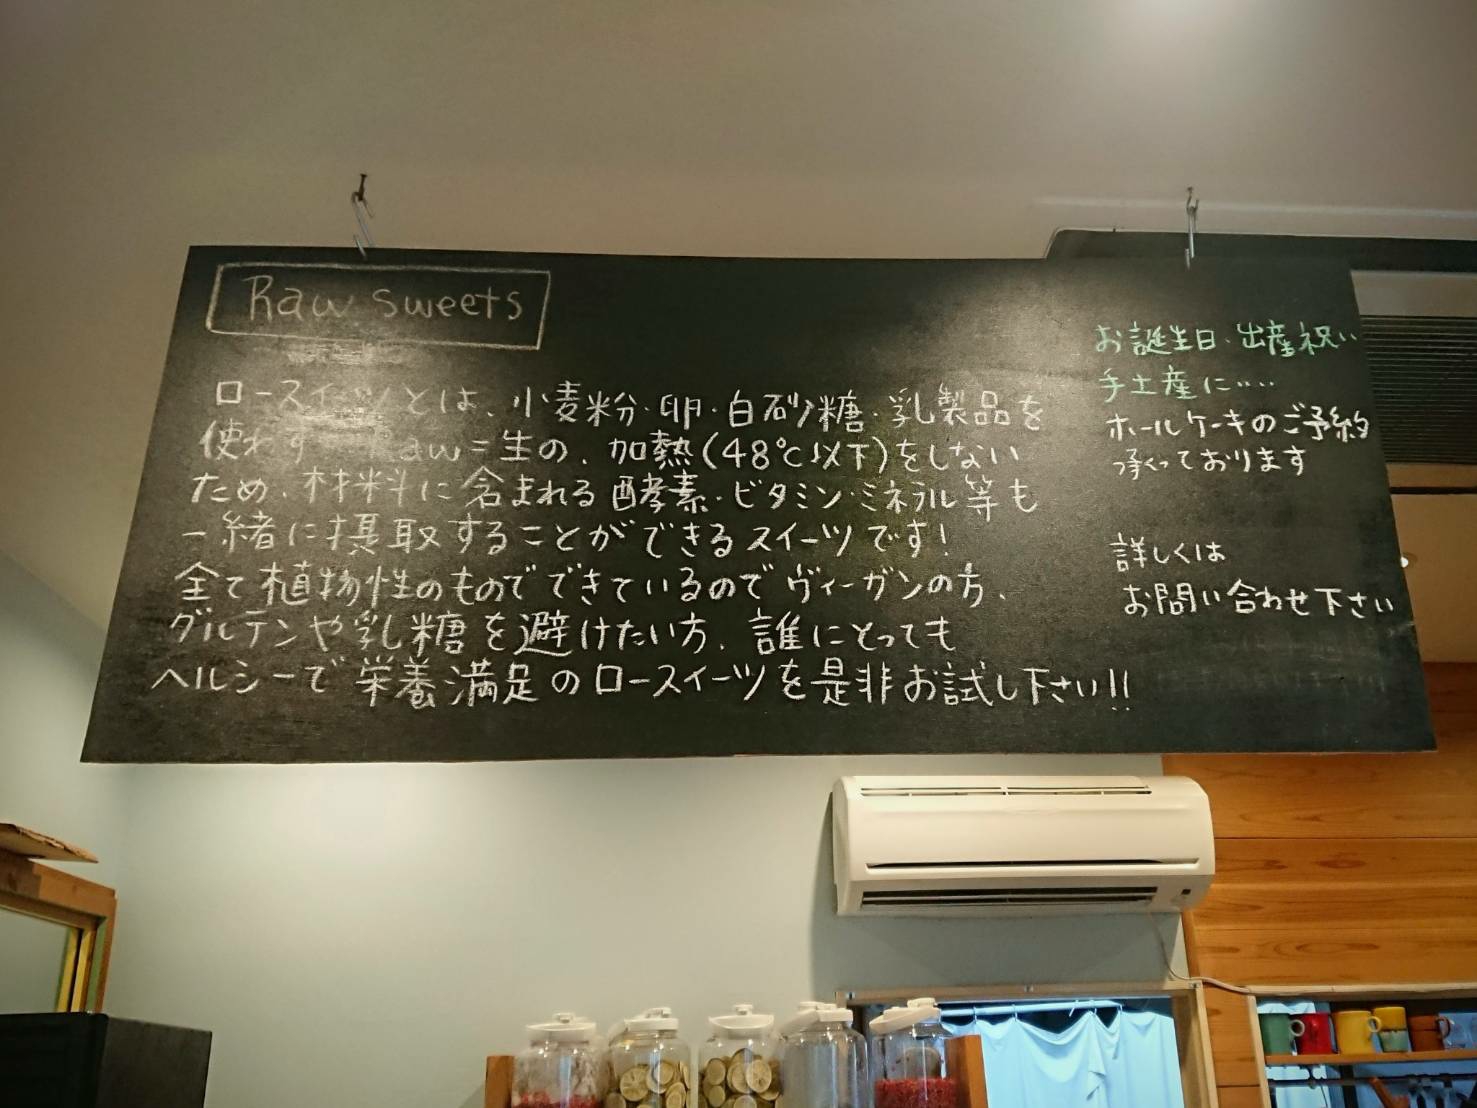 Raw sweets
ロースイーツとは、小麦粉・卵・白砂糖・乳製品を
使わず Raw=生の、加熱(48℃以下)をしない
ため、材料に含まれる酵素・ビタミン・ミネラル等も
一緒に摂取することができるスイーツです!
全て植物性のものでできているのでヴィーガンの方、
グルテンや乳糖を避けたい方、誰にとっても
ヘルシーで栄養満足のロースイーツを是非お試し下さい!!
お誕生日・出産祝い
手土産に‥‥
ホールケーキのご予約
承っております
詳しくは
お問い合わせ下さい